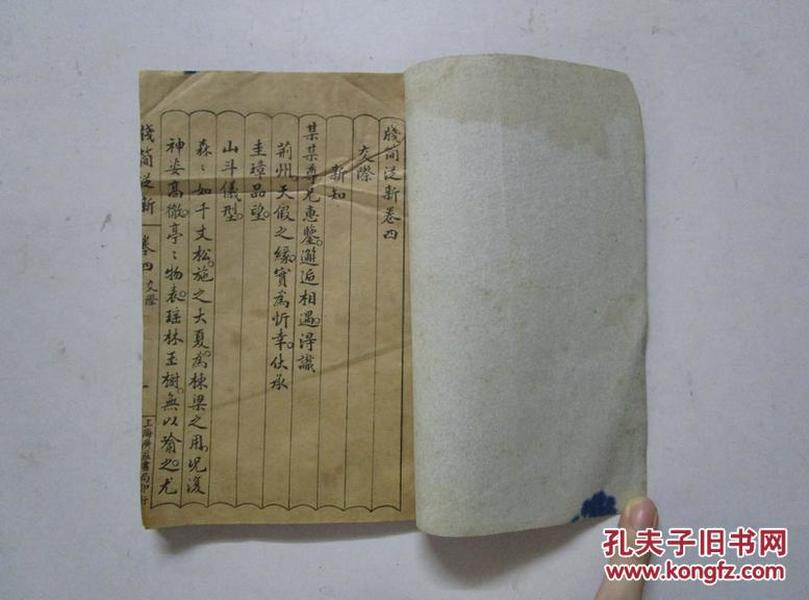 牋简泛新卷四
交際
新知
某某尊兄惠鑒。邂逅相遇。淂識
荊州。天假之緣。實為忻幸。伏承
圭璋品望。
山斗儀型。
森〻如千丈松。施之大夏。為棟梁之用。况復
神姿高徹。亭〻物表。瑶林玉樹。無以喻之。尤
牋简泛新 卷四 交際 一
上海廣益書局印行
孔夫子旧书网
www.kongfz.com